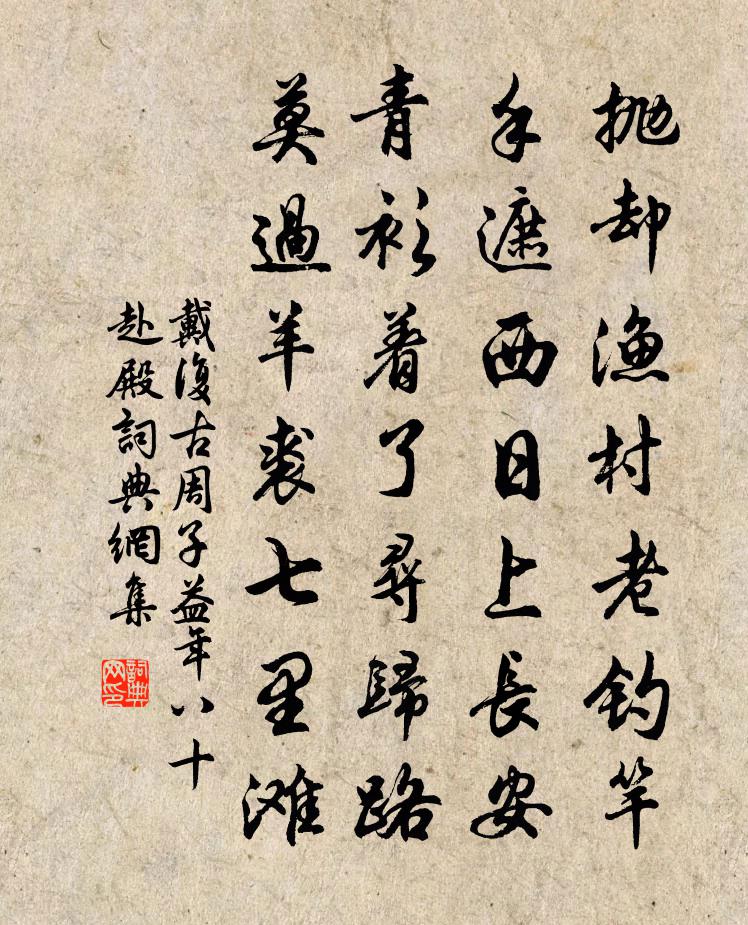 抛却渔村老釣竿
手遮西日上長安
青衫着了尋歸路
莫過羊裘七里滩
戴復古周子益年八十
赴殿詞典網集
詞典网印